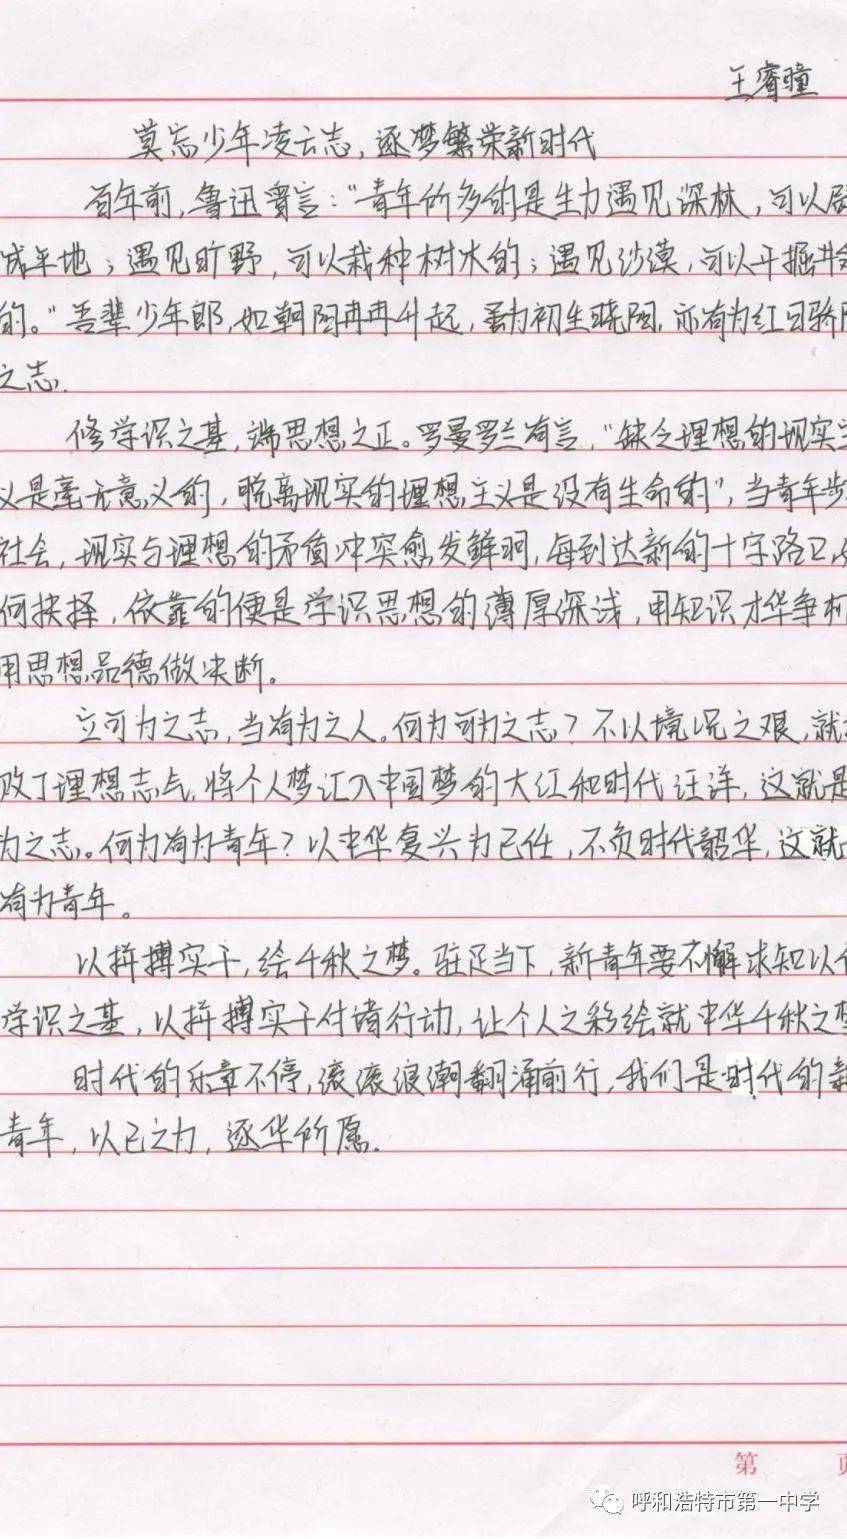 王睿瞳
莫忘少年凌云志，逐梦繁荣新时代
百年前，鲁迅曾言："青年所多的是生力遇见深林，可以辟
成平地；遇见旷野，可以栽种树木的；遇见沙漠，可以开掘井
的。"吾辈少年郎，如朝阳冉冉升起，虽为初生晓阳，亦有为红日骄阳
之志.
修学识之基，端思想之正。罗曼罗兰有言，"缺乏理想的现实主
义是毫无意义的，脱离现实的理想主义是没有生命的"，当青年步
社会，现实与理想的矛盾冲突愈发鲜明，每到达新的十字路口，
何抉择，依靠的便是学识思想的薄厚深浅，用知识才华争机
用思想品德做决断。
立可为之志，当有为之人。何为可为之志？不以境况之艰，就
败了理想志气，将个人梦汇入中国梦的大江和时代汪洋，这就是
为之志。何为有为青年？以中华复兴为己任，不负时代韶华，这就
有为青年。
以拼搏实干，绘千秋之梦。驻足当下，新青年要不懈求知以
学识之基，以拼搏实干付诸行动，让个人之彩绘就中华千秋之梦
时代的乐章不停，滚滚浪潮翻涌前行，我们是时代的新
青年，以己之力，逐华所愿.
第 页
呼和浩特市第一中学